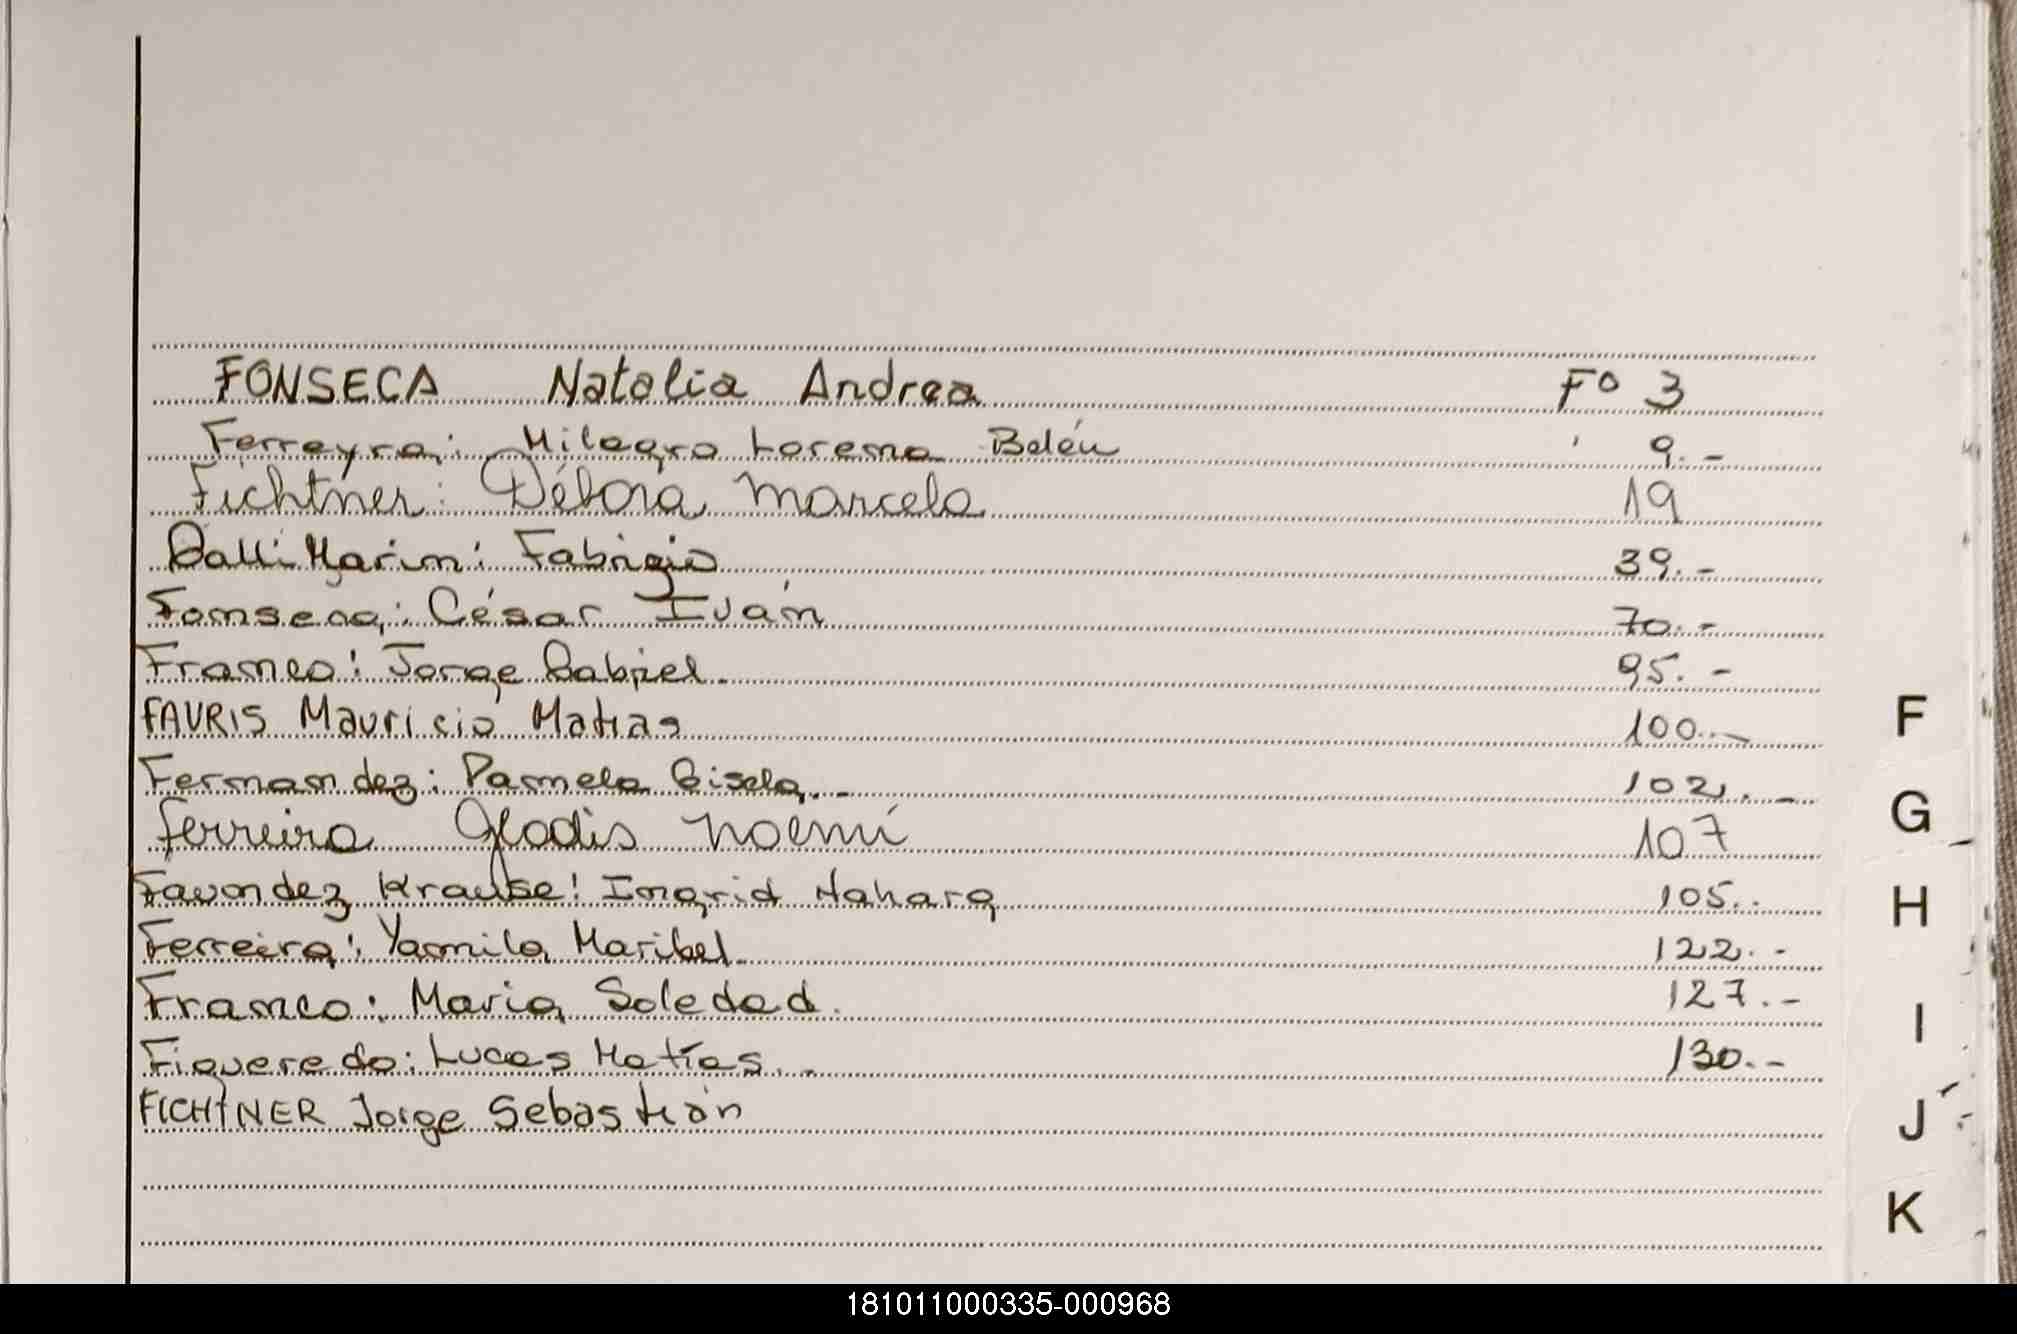 FONSECA Natalia Andrea Fº 3
Ferreyra: Milagro Lorena Belén 9.-
Fichtner: Débora Marcela 19
Galli Marin: Fabrizio 39.-
Fonseca: César Iván 70.-
Franco: Jorge Gabriel. 95.-
FAURIS Mauricio Matias 100.-
F
Fernandez: Pamela Gisela.- 102.-
G
Ferreira Gladis Noemí 107
Favondez Krause: Ingrid Nahara 105..
H
Ferreira: Yamila Maribel. 122.-
Franco: Maria Soledad. 127.-
I
Figueredo: Lucas Matías.- 130.-
FICHTNER Jorge Sebastián
J
K
181011000335-000968